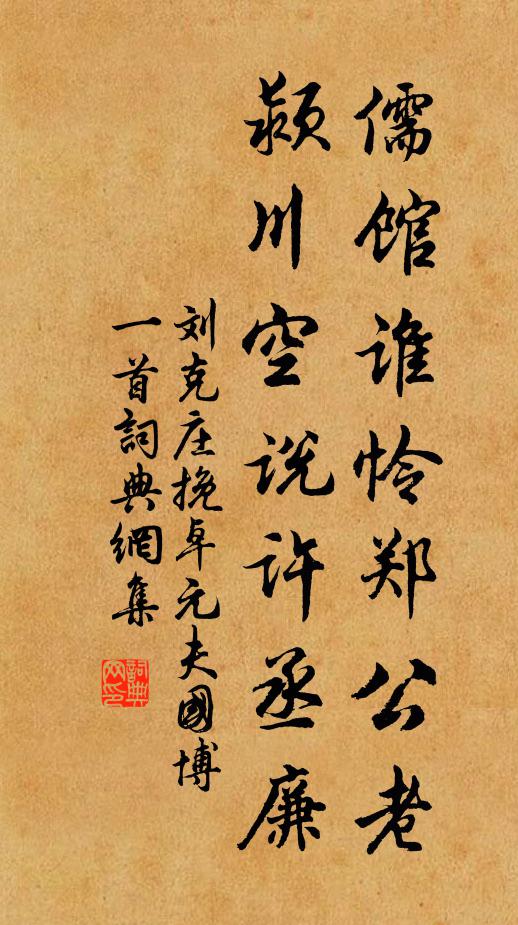 儒馆谁怜郑公老
颍川空说许丞廉
刘克庄挽卓元夫國博
一首詞典網集
詞典网印